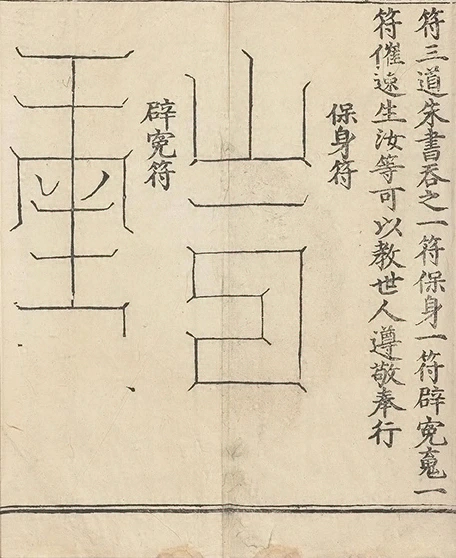 符三道朱書吞之一符保身一符辟寃䰟一
符催速生汝等可以教世人遵敬奉行
保身符
辟寃符